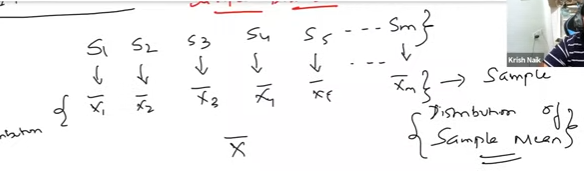 S1 S2 S3 S4 S5 ---- Sm}
↓ ↓ ↓ ↓ ↓ --- ↓
{ x̄1 x̄2 x̄3 x̄4 x̄5 x̄m} → Sample
{Distribution of
Sample Mean}
x̄
Krish Naik